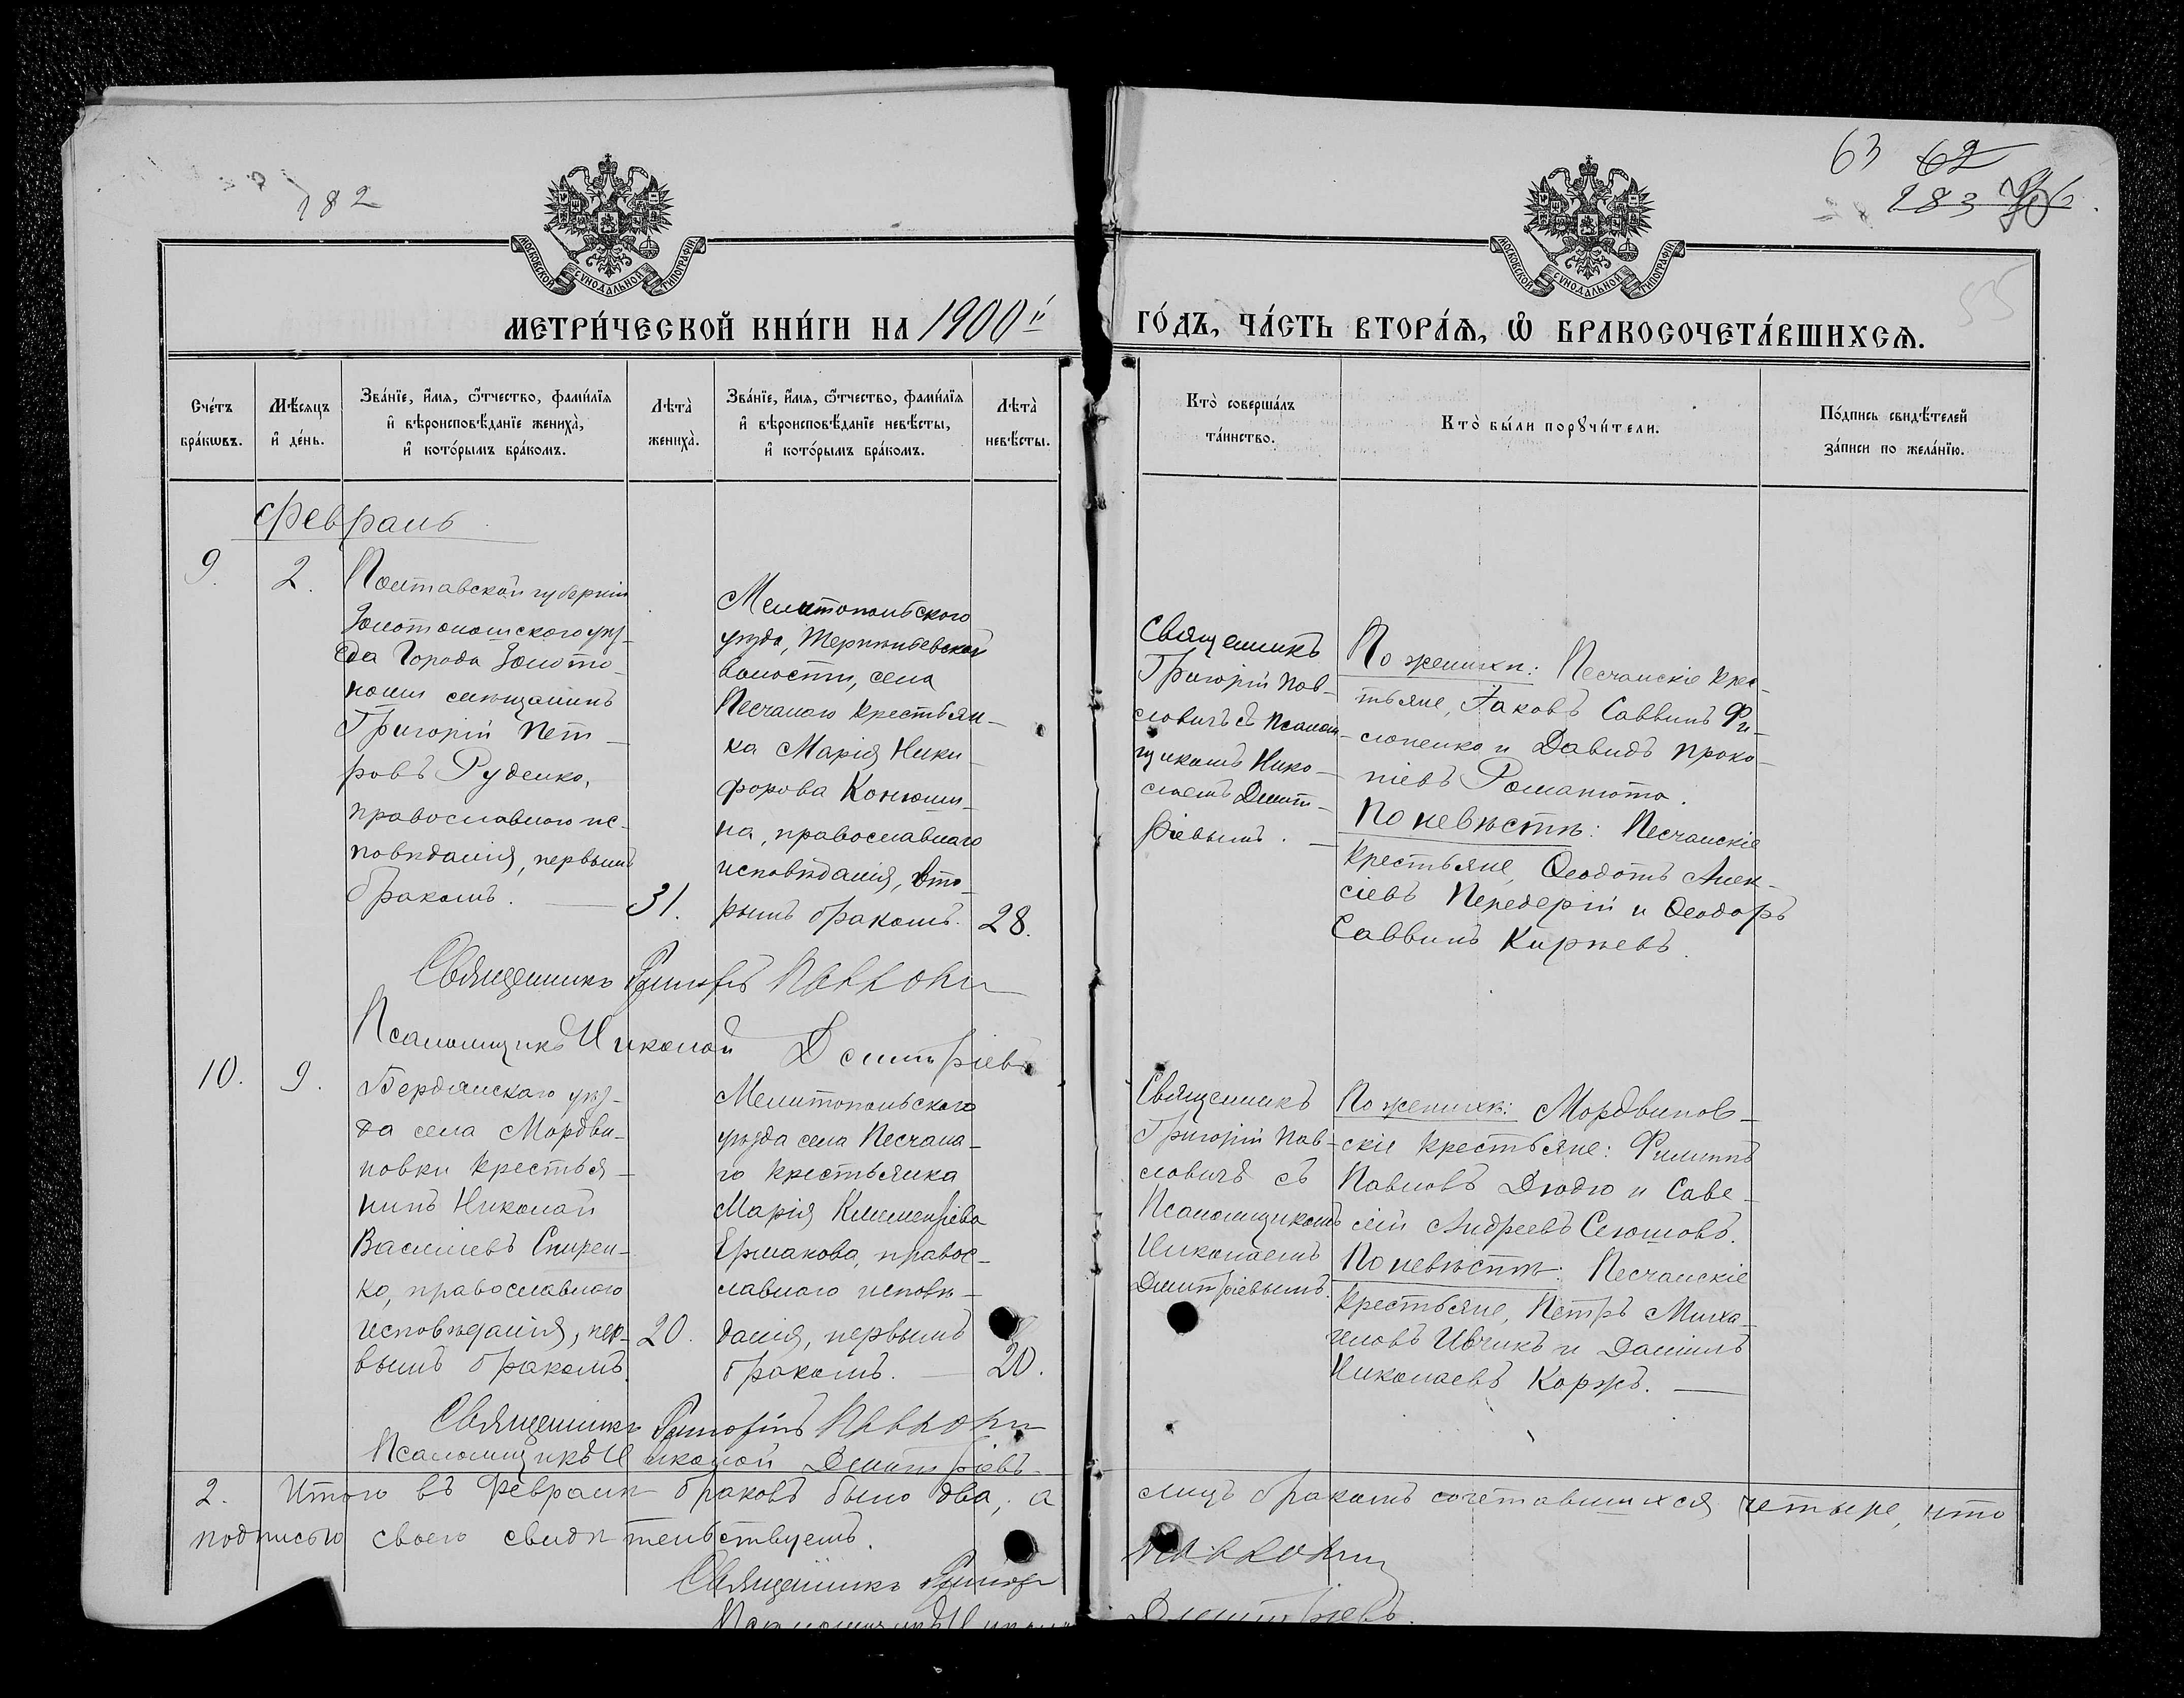 182
63 62
183
55
МОСКОВСКОЙ СѴНОДАЛЬНОЙ ТИПОГРАФІИ
МОСКОВСКОЙ СѴНОДАЛЬНОЙ ТИПОГРАФІИ
МЕТРИ́ЧЕСКОЙ КНИ́ГИ НА 1900й
ГО́ДЪ, ЧА́СТЬ ВТОРА́Ѧ, Ѽ БРАКОСОЧЕТА́ВШИХСѦ.
Сче́тъ
бра́кѡвъ.
Мѣ́сѧцъ
и҆ де́нь.
Зва́нїе, и҆́мѧ, ѻ҆́тчество, фами́лїѧ
и҆ вѣроисповѣ́данїе жениха̀,
и҆ кото́рымъ бра́комъ.
Лѣта̀
жениха̀.
Зва́нїе, и҆́мѧ, ѻ҆́тчество, фами́лїѧ
и҆ вѣроисповѣ́данїе невѣ́сты,
и҆ кото́рымъ бра́комъ.
Лѣта̀
невѣ́сты.
Кто̀ соверша́лъ
та́инство.
Кто̀ бы́ли порꙋчи́тели.
По́дпись свидѣ́телей
за́писи по жела́нїю.
Февраль
9.
2.
Полтавской губерніи
Золотоношского уѣз-
да Города Золото-
ноши мѣщанинъ
Григорій Пет-
ровъ Руденко,
православного ис-
повѣданія, первымъ
бракомъ.
31.
Мелитопольского
уѣзда, Терпеньевской
волости, села
Песчаного крестьян-
ка Марія Ники-
форова Конюши-
на, православнаго
исповѣданія, вто-
рымъ бракомъ.
28.
Священникъ
Григорій Пав-
ловичъ съ Псалом-
щикомъ Нико-
лаемъ Дмит-
ріевымъ.
По женихѣ: Песчанскіе крес-
тьяне, Іаковъ Саввинъ Фи-
лоненко и Давидъ Проко-
піевъ Романюта.
По невѣстѣ: Песчанскіе
крестьяне, Ѳеодотъ Алек-
сіевъ Передерій и Ѳеодоръ
Саввинъ Киржевъ.
Священникъ Григорій Павловичъ
Псаломщикъ Николай Дмитріевъ
10.
9.
Бердянскаго уѣз-
да села Мордви-
новки крестья-
нинъ Николай
Василіевъ Спирен-
ко, православного
исповѣданія, пер-
вымъ бракомъ.
20.
Мелитопольскаго
уѣзда села Песчана-
го крестьянка
Марія Климентіева
Ермакова, правос-
лавного исповѣ-
данія, первымъ
бракомъ.
20.
Священникъ
Григорій Пав-
ловичъ съ
Псаломщикомъ
Николаемъ
Дмитріевымъ.
По женихѣ: Мордвинов-
скіе крестьяне: Филиппъ
Павловъ Дюдю и Саве-
лій Андреевъ Сеюшовъ.
По невѣстѣ: Песчанскіе
крестьяне, Петръ Миха-
иловъ Ивчикъ и Даніилъ
Николаевъ Коржъ.
Священникъ Григорій Павловичъ
Псаломщикъ Николай Дмитріевъ
2. Итого въ Февралѣ браковъ было два, а лицъ бракомъ сочетавшихся четыре, что
подписью своею свидѣтельствуемъ.
Священникъ Григорій Павловичъ
Псаломщикъ Николай Дмитріевъ.